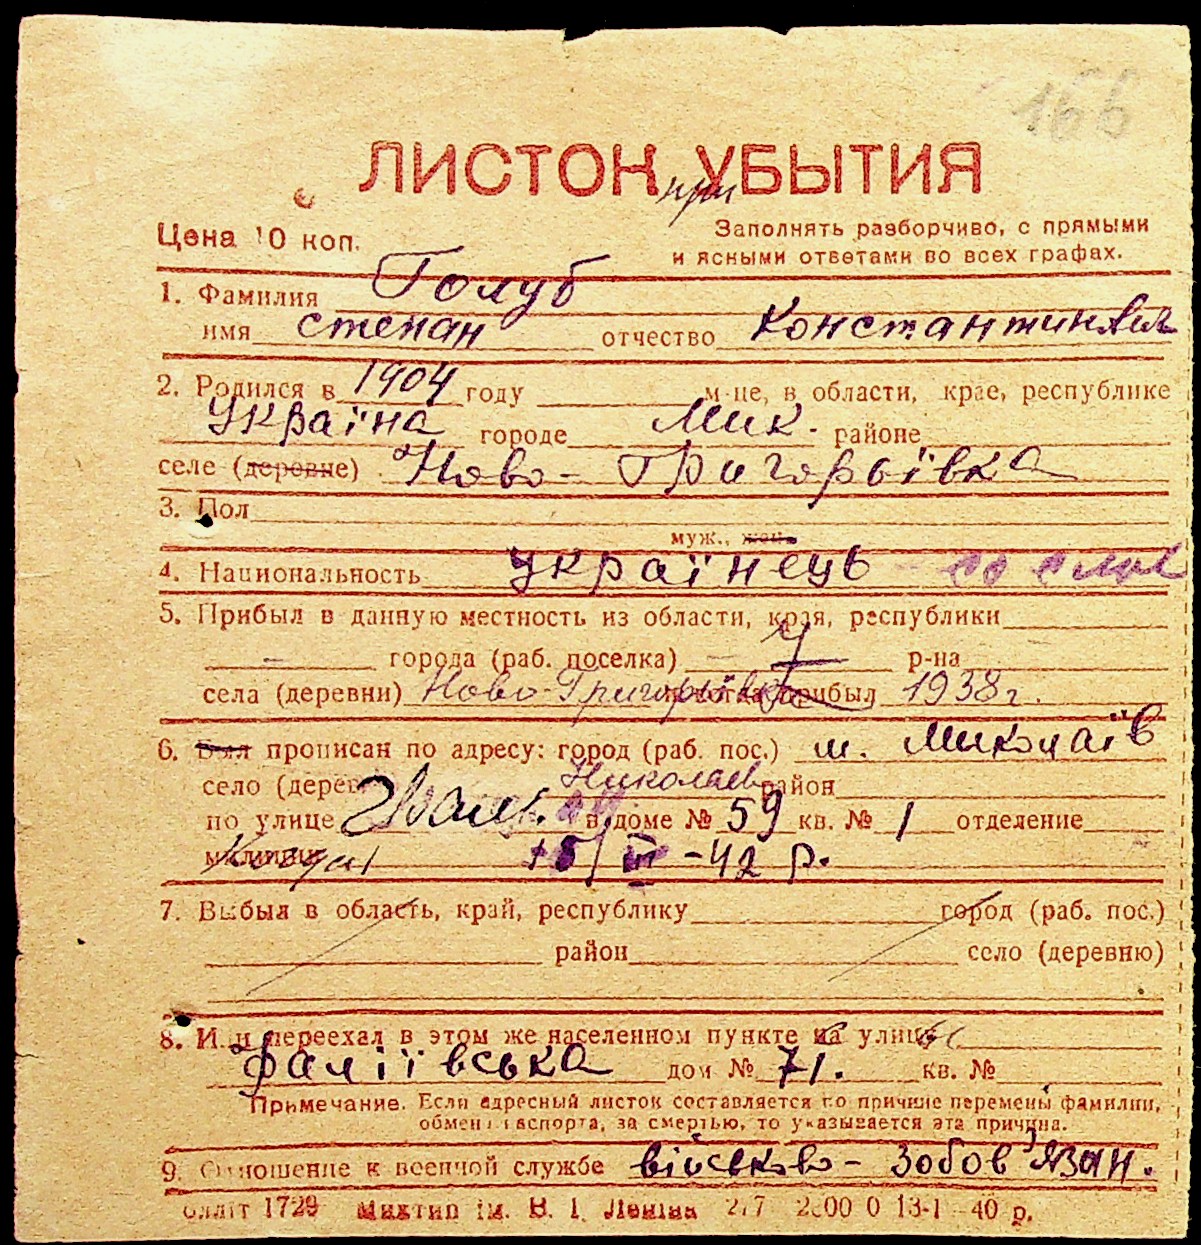 166
ЛИСТОК УБЫТИЯ
при
Цена 10 коп.
Заполнять разборчиво, с прямыми
и ясными ответами во всех графах.
1. Фамилия Голуб
имя степан отчество Константинович
2. Родился в 1904 году м-це, в области, крае, республике
Україна городе Мик. районе
селе (деревне) Ново-Григорьївка
3. Пол
муж., жен.
4. Национальность українець со слов
5. Прибыл в данную местность из области, края, республики
города (раб. поселка) р-на
села (деревни) Ново-Григорьївка и когда прибыл 1938 г.
6. Был прописан по адресу: город (раб. пос.) м. Миколаїв
село (дерев Николаев район
по улице в доме № 59 кв. № 1 отделение
милиции 5/III-42 р.
7. Выбыл в область, край, республику город (раб. пос.)
район село (деревню)
8. Или переехал в этом же населенном пункте на улицу
фаліївська дом № 71. кв. №
Примечание. Если адресный листок составляется по причине перемены фамилии,
обмена паспорта, за смертью, то указывается эта причина.
9. Отношение к военной службе військово-зобов'язан.
олліт 1729 Миктип ім. В. І. Леніна 217 2000 0 13-1-40 р.